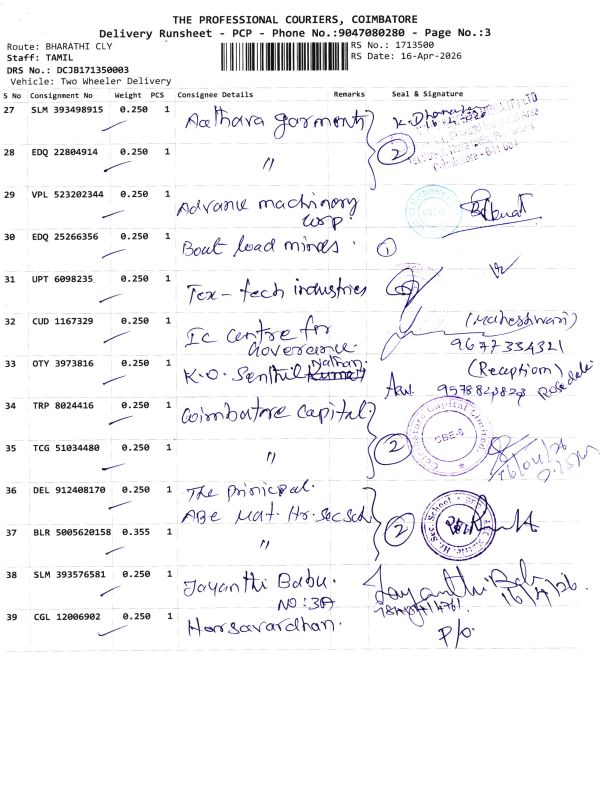 THE PROFESSIONAL COURIERS, COIMBATORE
Delivery Runsheet - PCP - Phone No.:9047080280 - Page No.:3
Route: BHARATHI CLY
RS No.: 1713500
Staff: TAMIL
RS Date: 16-Apr-2026
DRS No.: DCJB171350003
Vehicle: Two Wheeler Delivery
S No Consignment No Weight PCS Consignee Details Remarks Seal & Signature
27 SLM 393498915 0.250 1 Aathava garments
28 EDQ 22804914 0.250 1 〃 2
29 VPL 523202344 0.250 1 Advance machinery
corp.
30 EDQ 25266356 0.250 1 Boat load minds. 1
31 UPT 6098235 0.250 1 Tex-tech industries
32 CUD 1167329 0.250 1 Ic Centre for (Maheshwari)
Goverance. 9677334321
33 OTY 3973816 0.250 1 K.O. Senthil Nathan. (Reception)
9578823823
34 TRP 8024416 0.250 1 Coimbatore Capital.
35 TCG 51034480 0.250 1 〃 2 CBE-8
36 DEL 912408170 0.250 1 The principal.
ABC Mat. Hr. Sec Sch
37 BLR 5005620158 0.355 1 〃 2
38 SLM 393576581 0.250 1 Jayanthi Babu. Jayanthi Bab
NO: 3A 16/4/26
39 CGL 12006902 0.250 1 Harsavardhan. P/O.